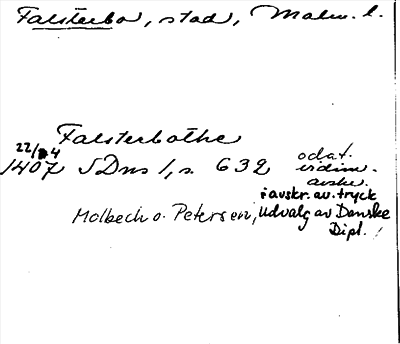 Falsterbo, stad, Malm. l.
Falsterbothe
22/4
1407 SDns 1, s. 632 odat.
vidim.
avskr.
i avskr. av. tryck
Molbech o. Petersen, Udvalg av Danske
Dipl.